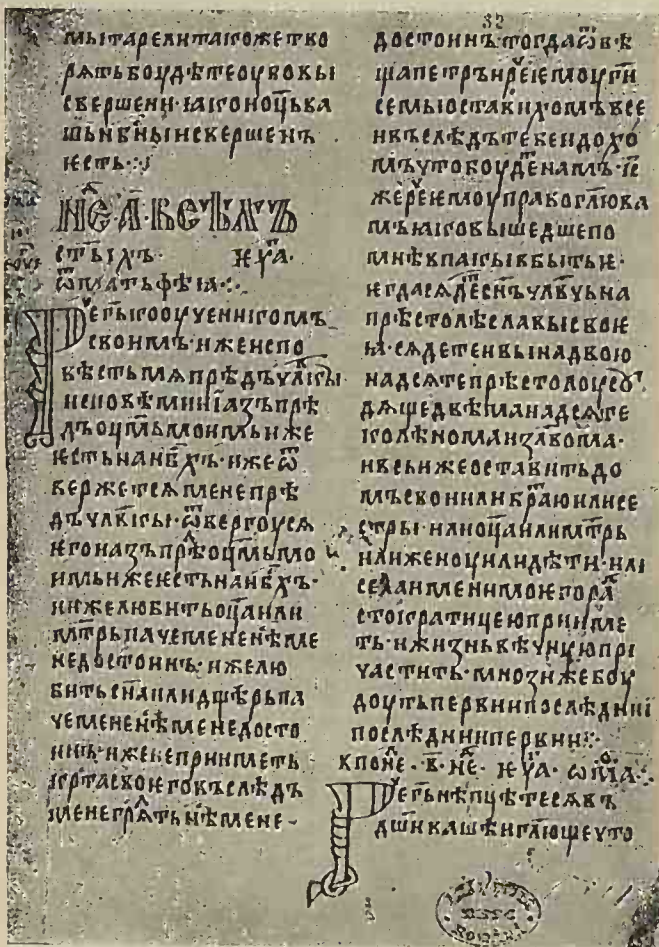 32
мытарелитакожетво
рять·боудѣтеоувокы
свершени·ꙗконоц҃ьва
шьнб҃ныисвершенъ
ѥсть·
Нⷣе·а҃·всѣхъ
ст҃ыхъ· ѥуⷢ҇а·
ѿматьфѣꙗ·:·
Рⷱ҇егь҃коѹуеникомъ
своимъ·ижеиспо
вѣстьмѧпрѣдъулв҃кы
исповѣмииꙗзъпрѣ
дъоц҃мьмоимьиже
ѥстьнанб҃хъ·ижеѿ
вержетсѧменепрѣ
дъулв҃кы·ѿвергоусѧ
ѥгоиазъпрⷣѣоц҃мьмо
имьижеѥстьнанб҃хъ·
ижелюбитьоц҃аили
мт҃рьпауемененⷭ҇ѣме
недостоинъ·ижелю
битьсн҃аилидщ҃ѣрьпа
уемененⷭ҇ѣменедосто
инъ·иженеприиметь
крⷭ҇тасвоѥговъслѣдъ
менегрⷣѧтьнⷭ҇ѣмене·
достоинъ·тогдаѿвѣ
щапетрънреⷱ҇ѥмоугн҃
семыоставихомъвсе
ивъслѣдътебеидохо
мъуътобоудеⷮнамъ·і҃с
жереⷱ҇ѥмоуправоглю҃ва
мъꙗковышедшепо
мнѣвпакыбытьи·
ѥгдасѧдеⷮсн҃ъулв҃уьна
прѣстолѣславысвоѥ
ꙗ·сѧдетеивынадвою
надесѧтепрѣстолоусоуⷣ
дѧщедвѣманадесѧте
колѣноманзл҃вома·
ивсьижеоставитьдо
мъсвоиилибра҃юилисе
стры·илиоц҃аилимт҃рь
илиженоуилидѣти·или
селаименимоѥгораⷣ
стократицеюприиме
ть·ижизньвѣунуюпри
уастить·мноѕижебоу
доутьпервиипослѣднии
послѣдниипервии:·
кпонеⷣ·в҃·неⷣ·ѥуⷢ҇а·ѿмⷴ҇а·:·
Рⷱ҇егь҃нѣпцѣтесѧвъ
дш҃ивашѣиглю҃щеуто